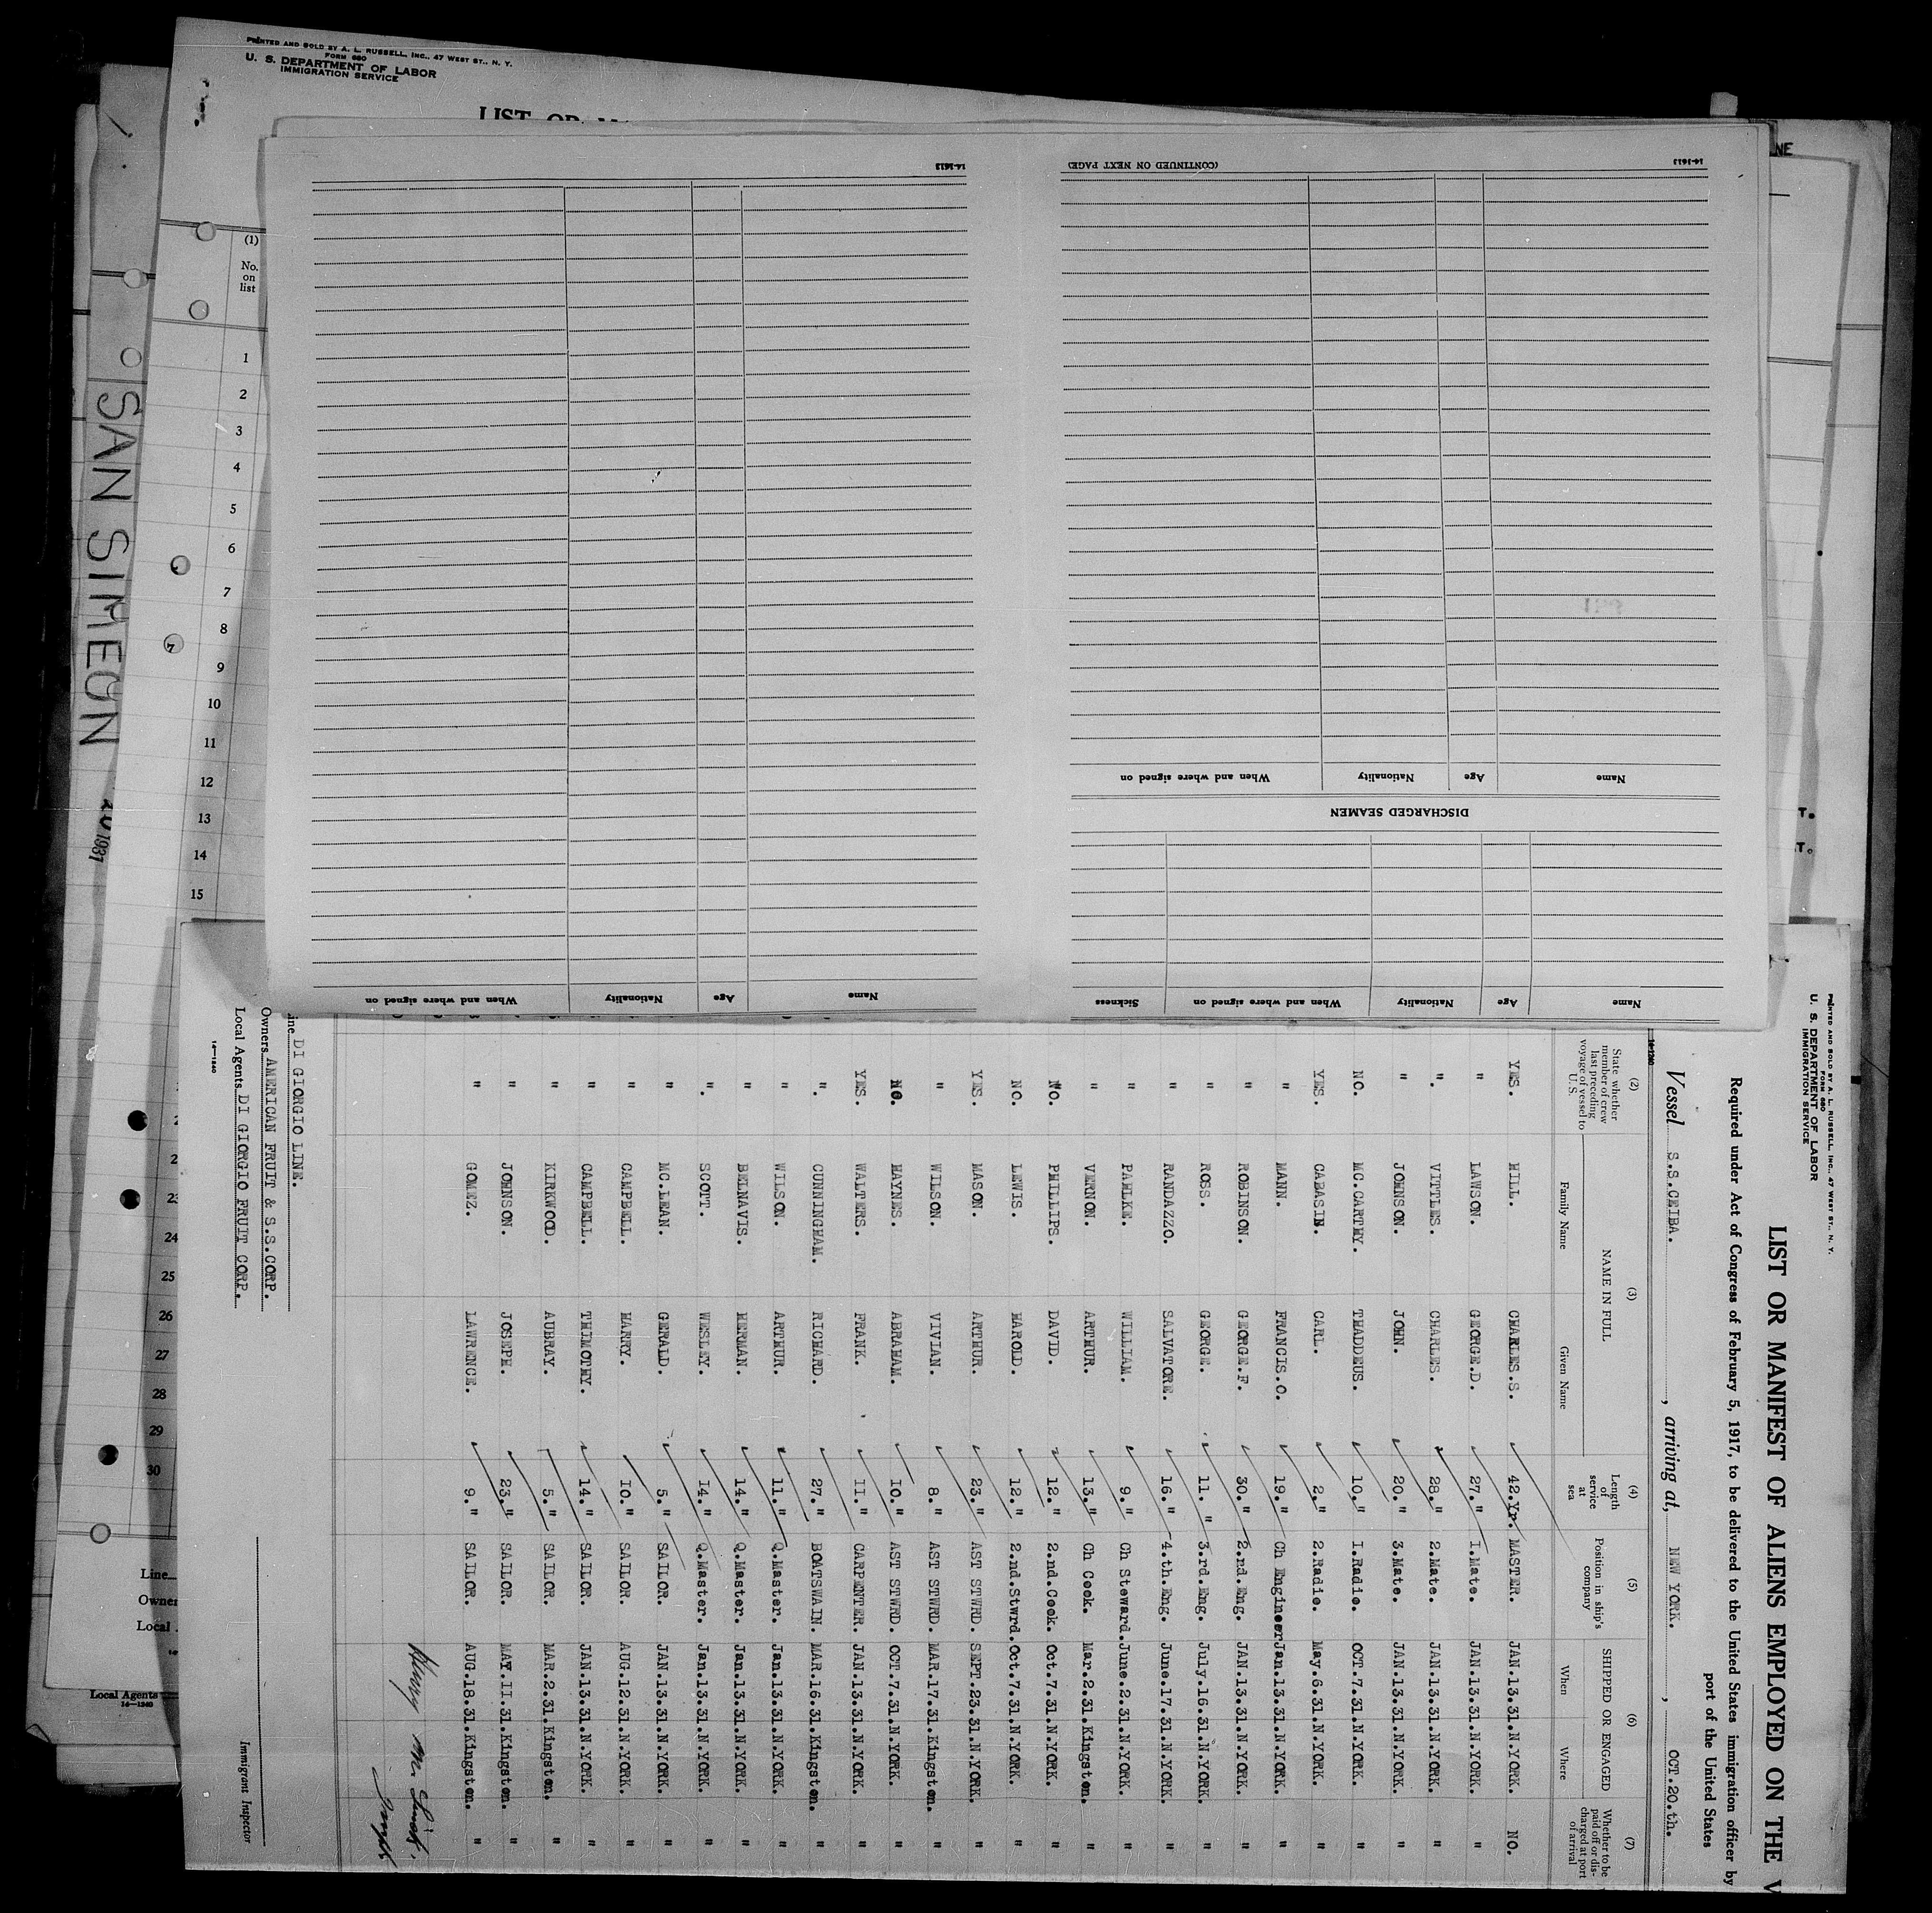 PRINTED AND SOLD BY A. L. RUSSELL, INC., 47 WEST ST., N. Y.
FORM 680
U. S. DEPARTMENT OF LABOR
IMMIGRATION SERVICE
LIST OR
(1)
No. on list
1
2
3
4
5
6
7
8
9
10
11
12
13
14
15
SAN SIMEON
1931
7
23
24
25
26
27
28
29
30
Line
Owner
Local
Local Agents
14—1240
NE
T.
T.
14-1613
When and where signed on Nationality Age Name
14-1613
(CONTINUED ON NEXT PAGE)
Name Age Nationality When and where signed on
DISCHARGED SEAMEN
Name Age Nationality When and where signed on Sickness
PRINTED AND SOLD BY A. L. RUSSELL, INC., 47 WEST ST., N. Y.
FORM 680
U. S. DEPARTMENT OF LABOR
IMMIGRATION SERVICE
LIST OR MANIFEST OF ALIENS EMPLOYED ON THE V
Required under Act of Congress of February 5, 1917, to be delivered to the United States immigration officer by
port of the United States
Vessel S.S.CEIBA. , arriving at, NEW YORK. , OCT.20.th.
(2) (3) (4) (5) (6) (7)
State whether member of crew last preceding voyage of vessel to U. S. NAME IN FULL Length of service at sea Position in ship's company SHIPPED OR ENGAGED Whether to be paid off or discharged at port of arrival
Family Name Given Name When Where
YES. HILL. CHARLES.S. 42.Yr. MASTER. JAN.13.31.N.YORK. NO.
" LAWSON. GEORGE.D. 27." I.Mate. JAN.13.31.N.YORK. "
". VITTLES. CHARLES. 28." 2.Mate. JAN.13.31.N.YORK. "
" JOHNSON. JOHN. 20." 3.Mate. JAN.13.31.N.YORK. "
NO. MC.CARTHY. THADDEUS. 10." I.Radio. OCT.7.31.N.YORK. "
YES. CABASIN. CARL. 2." 2.Radio. May.6.31.N.YORK. "
" MANN. FRANCIS.O. 19." Ch Engineer Jan.13.31.N.YORK. "
" ROBINSON. GEORGE.F. 30." 2.nd.Eng. JAN.13.31.N.YORK. "
" ROSS. GEORGE. 11. " 3.rd.Eng. July.16.31.N.YORK. "
" RANDAZZO. SALVATORE. 16." 4.th.Eng. June.17.31.N.YORK. "
" PAHLKE. WILLIAM. 9." Ch Steward. June.2.31.N.YORK. "
" VERNON. ARTHUR. 13." Ch Cook. Mar.2.31.Kingston. "
NO. PHILLIPS. DAVID. 12." 2.nd.Cook. Oct.7.31.N.YORK. "
NO. LEWIS. HAROLD. 12." 2.nd.Stwrd. Oct.7.31.N.YORK. "
YES. MASON. ARTHUR. 23." AST STWRD. SEPT.23.31.N.YORK. "
" WILSON. VIVIAN. 8." AST STWRD. MAR.17.31.Kingston. "
NO. HAYNES. ABRAHAM. IO." AST STWRD. OCT.7.31.N.YORK. "
YES. WALTERS. FRANK. II." CARPENTER. JAN.13.31.N.YORK. "
". CUNNINGHAM. RICHARD. 27." BOATSWAIN. MAR.16.31.Kingston. "
" WILSON. ARTHUR. 11." Q.Master. Jan.13.31.N.YORK. "
" BELNAVIS. HERMAN. 14." Q.Master. Jan.13.31.N.YORK. "
". SCOTT. WESLEY. 14." Q.Master. Jan.13.31.N.YORK. "
" MC.LEAN. GERALD. 5." SAILOR. JAN.13.31.N.YORK. "
" CAMPBELL. HARRY. IO." SAILOR. AUG.12.31.N.YORK. "
" CAMPBELL. THIMOTHY. 14." SAILOR. JAN.13.31.N.YORK. "
" KIRKWOOD. AUBRAY. 5." SAILOR. MAR.2.31.Kingston. "
" JOHNSON. JOSEPH. 23." SAILOR. MAY.II.31.Kingston. "
" GOMEZ. LAWRENCE. 9." SAILOR. AUG.18.31.Kingston. "
Henry M.
Line DI GIORGIO LINE.
Owners AMERICAN FRUIT & S.S.CORP.
Local Agents DI GIORGIO FRUIT CORP.
Immigrant Inspector
14—1240